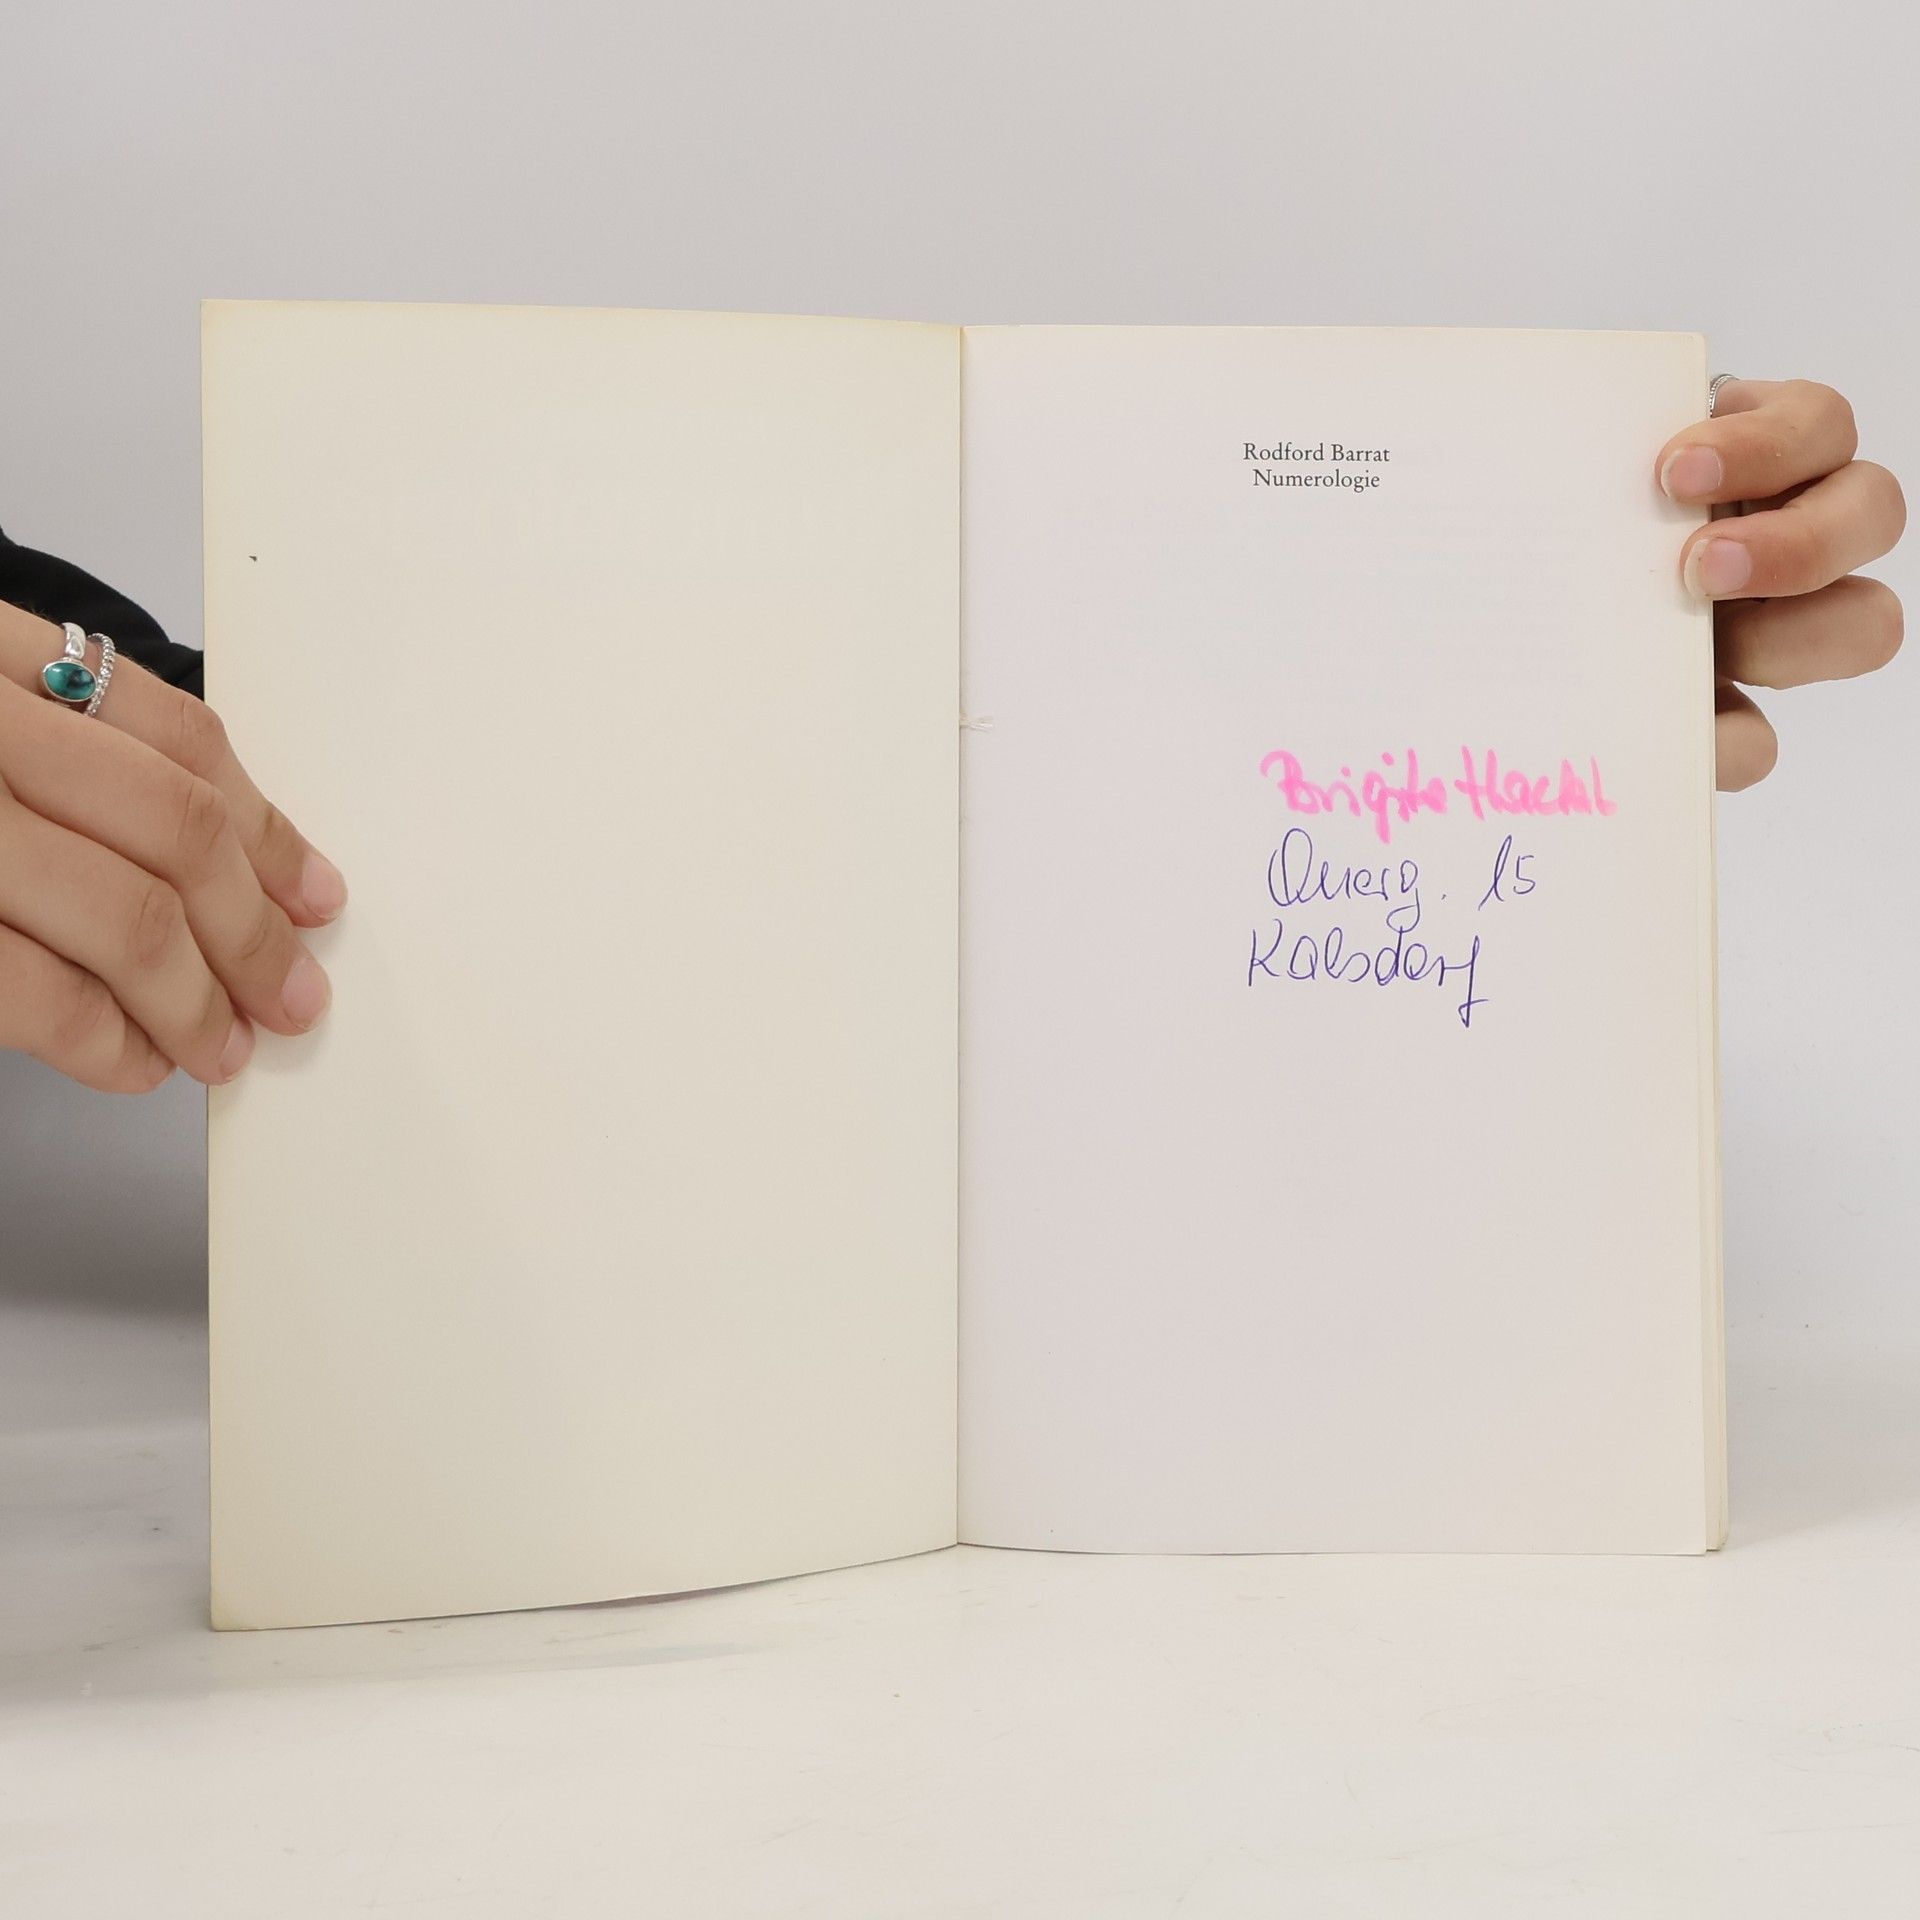 Rodford Barrat
Numerologie
Brigitte
Querg. 15
Kalsdorf